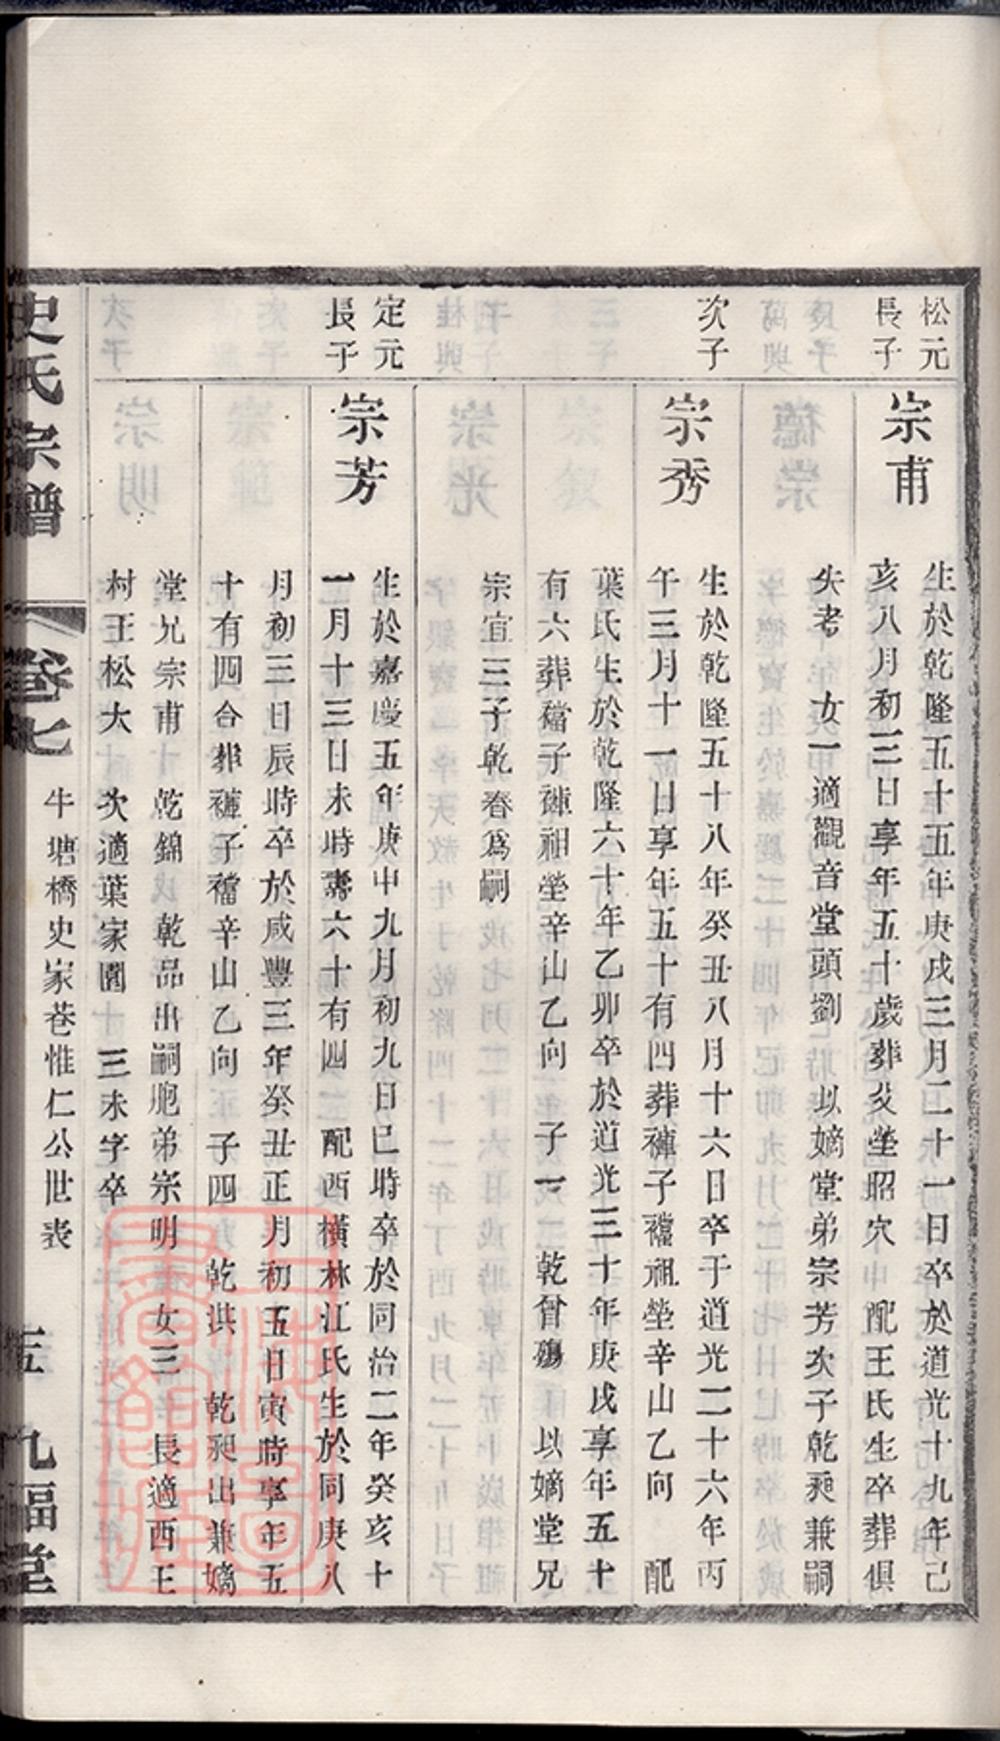 松元
長子
宗甫
生於乾隆五十五年庚戌三月二十一日卒於道光十九年己
亥八月初三日享年五十歲葬父塋昭穴 配王氏生卒葬俱
失考 女一適觀音堂頭劉 以嫡堂弟宗芳次子乾昶兼嗣
次子
宗秀
生於乾隆五十八年癸丑八月十六日卒于道光二十六年丙
午三月十一日享年五十有四葬褲子襠祖塋辛山乙向 配
葉氏生於乾隆六十年乙卯卒於道光三十年庚戌享年五十
有六葬襠子褲祖塋辛山乙向 子一 乾曾殤 以嫡堂兄
宗宜三子乾春為嗣
定元
長子
宗芳
生於嘉慶五年庚申九月初九日巳時卒於同治二年癸亥十
一月十三日未時壽六十有四 配西橫林江氏生於同庚八
月初三日辰時卒於咸豐三年癸丑正月初五日寅時享年五
十有四合葬褲子襠辛山乙向 子四 乾淇 乾昶出兼嫡
堂兄宗甫 乾錦 乾品出嗣胞弟宗明 女三 長適西王
村王松大 次適葉家園 三未字卒
史氏宗譜
卷七
牛塘橋史家巷惟仁公世表
五
九福堂